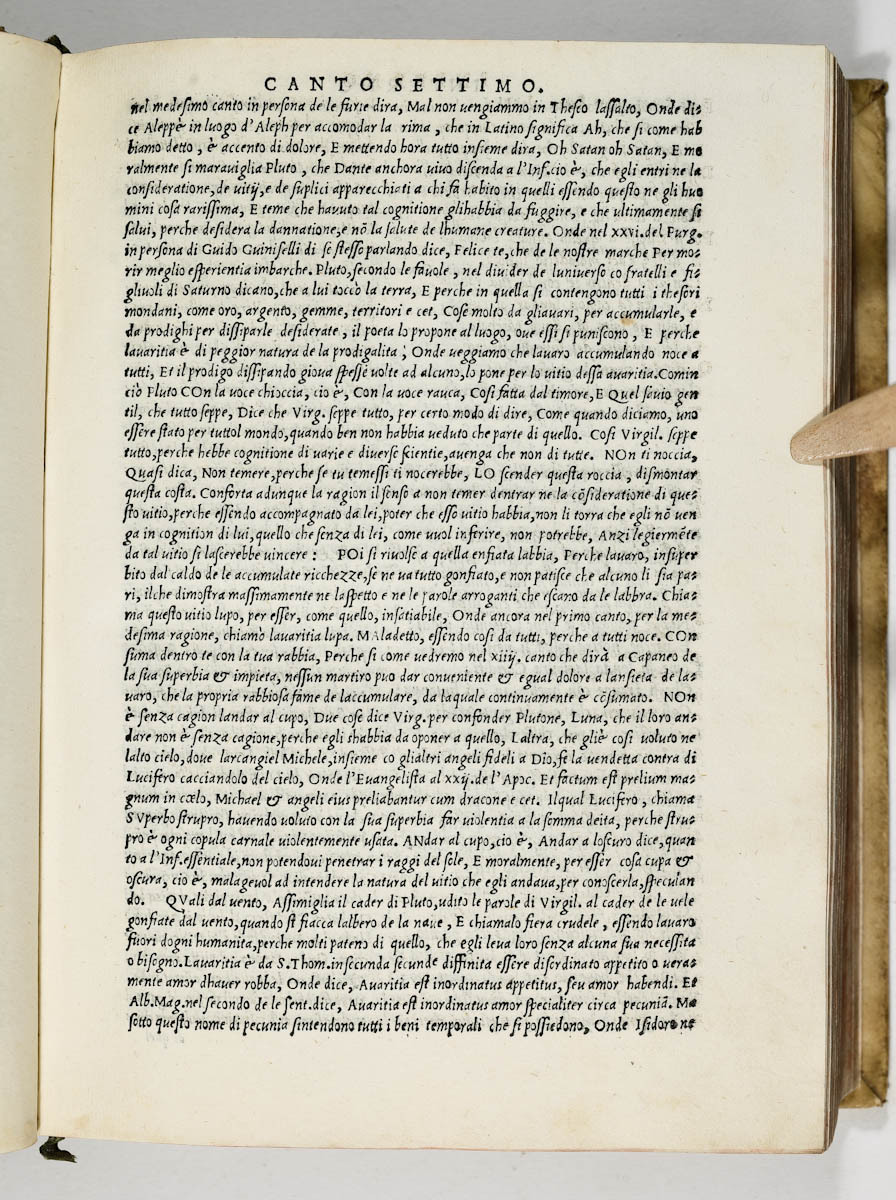 CANTO SETTIMO.
nel medesimo canto in persona de le furie dira, Mal non uengiammo in Theseo lassalto, Onde di=
ce Aleppè in luogo d'Aleph per accomodar la rima, che in Latino significa Ah, che si come hab
biamo detto, è accento di dolore, E mettendo hora tutto insieme dira, Oh Satan oh Satan, E mo
ralmente si marauiglia Pluto, che Dante anchora uiuo discenda a l'Inf.cio è, che egli entri ne la
consideratione,de uitij,e de suplici apparecchiati a chi fa habito in quelli essendo questo ne gli huo
mini cosa rarissima, E teme che hauuto tal cognitione glihabbia da fuggire, e che ultimamente si
salui, perche desidera la dannatione,e nō la salute de lhumane creature. Onde nel XXVI.del Purg.
in persona di Guido Guiniselli di se stesso parlando dice, Felice te,che de le nostre marche Per mo=
rir meglio esperientia imbarche. Pluto,secondo le fauole, nel diuider de luniuerso co fratelli e fi=
gliuoli di Saturno dicano,che a lui toccò la terra, E perche in quella si contengono tutti i thesori
mondani, come oro, argento, gemme, territori e cet, Cose molto da gliauari, per accumularle, e
da prodighi per dissiparle desiderate, il poeta lo propone al luogo, oue essi si puniscono, E perche
lauaritia è di peggior natura de la prodigalita; Onde ueggiamo che lauaro accumulando noce a
tutti, Et il prodigo dissipando gioua spesse uolte ad alcuno,lo pone per lo uitio dessa auaritia.Comin
ciò Pluto COn la uoce chioccia, cio è, Con la uoce rauca, Cosi fatta dal timore, E Quel sauio gen
til, che tutto seppe, Dice che Virg. seppe tutto, per certo modo di dire, Come quando diciamo, uno
essere stato per tuttol mondo,quando ben non habbia ueduto che parte di quello. Cosi Virgil. seppe
tutto,perche hebbe cognitione di uarie e diuerse scientie,auenga che non di tutte. NOn ti noccia,
Quasi dica, Non temere,perche se tu temessi ti nocerebbe, LO scender questa roccia, dismontar
questa costa. Conforta adunque la ragion il senso a non temer dentrar ne la cōsideratione di que=
sto uitio,perche essendo accompagnato da lei,poter che esso uitio habbia,non li torra che egli nō uen
ga in cognition di lui,quello che senza di lei, come uuol inferire, non potrebbe, Anzi legiermēte
da tal uitio si lascerebbe uincere: POi si riuolse a quella enfiata labbia, Perche lauaro, insuper
bito dal caldo de le accumulate ricchezze,se ne ua tutto gonfiato,e non patisce che alcuno li sia pa=
ri, ilche dimostra massimamente ne laspetto e ne le parole arroganti che escano da le labbra. Chia=
ma questo uitio lupo, per esser, come quello, insatiabile, Onde ancora nel primo canto, per la me=
desima ragione, chiamò lauaritia lupa. MAladetto, essendo cosi da tutti, perche a tutti noce. COn
suma dentro te con la tua rabbia, Perche si come uedremo nel xiiij. canto che dirà a Capaneo de
la sua superbia & impieta, nessun martiro puo dar conueniente & egual dolore a lansieta de la=
uaro, che la propria rabbiosa fame de laccumulare, da laquale continuamente è cōsumato. NOn
è senza cagion landar al cupo, Due cose dice Virg. per confonder Plutone, Luna, che il loro an=
dare non è senza cagione,perche egli shabbia da oponer a quello, Laltra, che gliè cosi uoluto ne
lalto cielo,doue larcangiel Michele,insieme co glialtri angeli fideli a Dio,fe la uendetta contra di
Lucifero cacciandolo del cielo, Onde l'Euangelista al xxij.de l'Apoc. Et factum est prelium ma=
gnum in cœlo, Michael & angeli eius preliabantur cum dracone e cet. Ilqual Lucifero, chiama
SVperbo strupro, hauendo uoluto con la sua superbia far uiolentia a la somma deita, perche stru=
pro è ogni copula carnale uiolentemente usata. ANdar al cupo,cio è, Andar a loscuro dice,quan
to a l'Inf.essentiale,non potendoui penetrar i raggi del sole, E moralmente, per esser cosa cupa &
oscura, cio è, malageuol ad intendere la natura del uitio che egli andaua,per conoscerla,speculan
do. QVali dal uento, Assimiglia il cader di Pluto,udito le parole di Virgil. al cader de le uele
gonfiate dal uento,quando si fiacca lalbero de la naue, E chiamalo fiera crudele, essendo lauaro
fuori dogni humanita,perche molti pateno di quello, che egli leua loro senza alcuna sua necessita
o bisogno.Lauaritia è da S.Thom.in secunda secunde diffinita essere disordinato appetito o uera=
mente amor dhauer robba, Onde dice, Auaritia est inordinatus appetitus, seu amor habendi. Et
Alb.Mag.nel secondo de le sent.dice, Auaritia est inordinatus amor specialiter circa pecuniā. Ma
sotto questo nome di pecunia sintendono tutti i beni temporali che si possiedono, Onde Isidoro ne